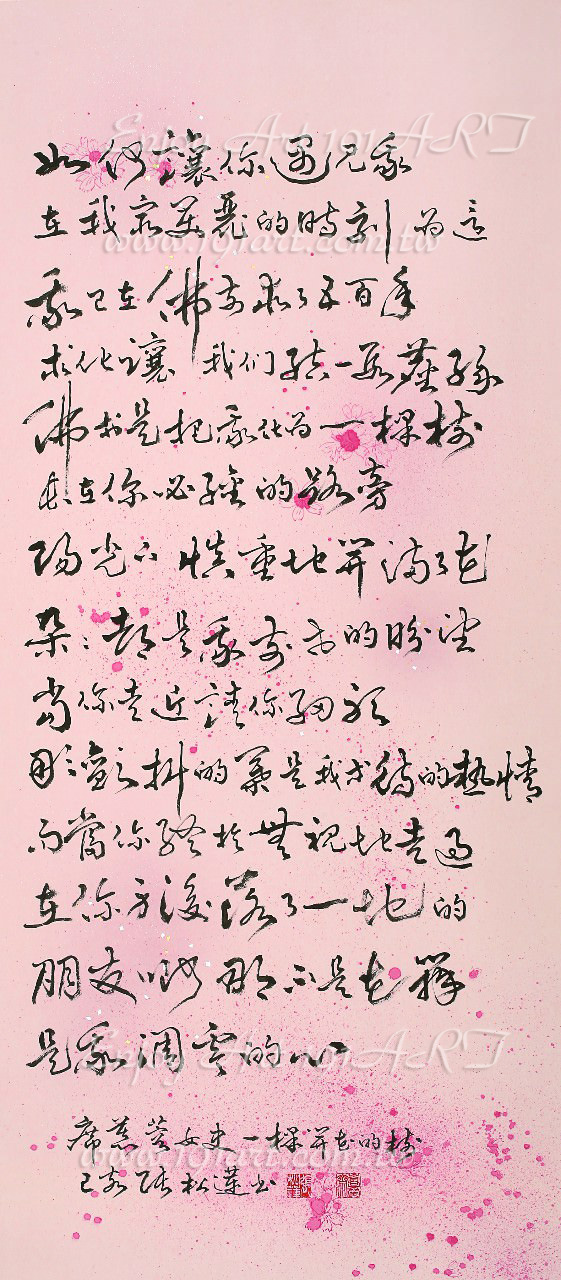 Enjoy Art 101ART
如何讓你遇見我
在我最美麗的時刻 為這
www.101art.com.tw
我已在佛前求了五百年
求他讓我们結一段塵緣
佛於是把我化為一棵樹
長在你必經的路旁
陽光下慎重地開滿了花
朵朵都是我前世的盼望
當你走近請你細聽
那顫抖的葉是我等待的熱情
而當你終於無視地走過
在你身後落了一地的
朋友啊那不是花瓣
是我凋零的心
Enjoy Art 101ART
席慕蓉女史一棵開花的樹
www.101art.com.tw
松蓮書